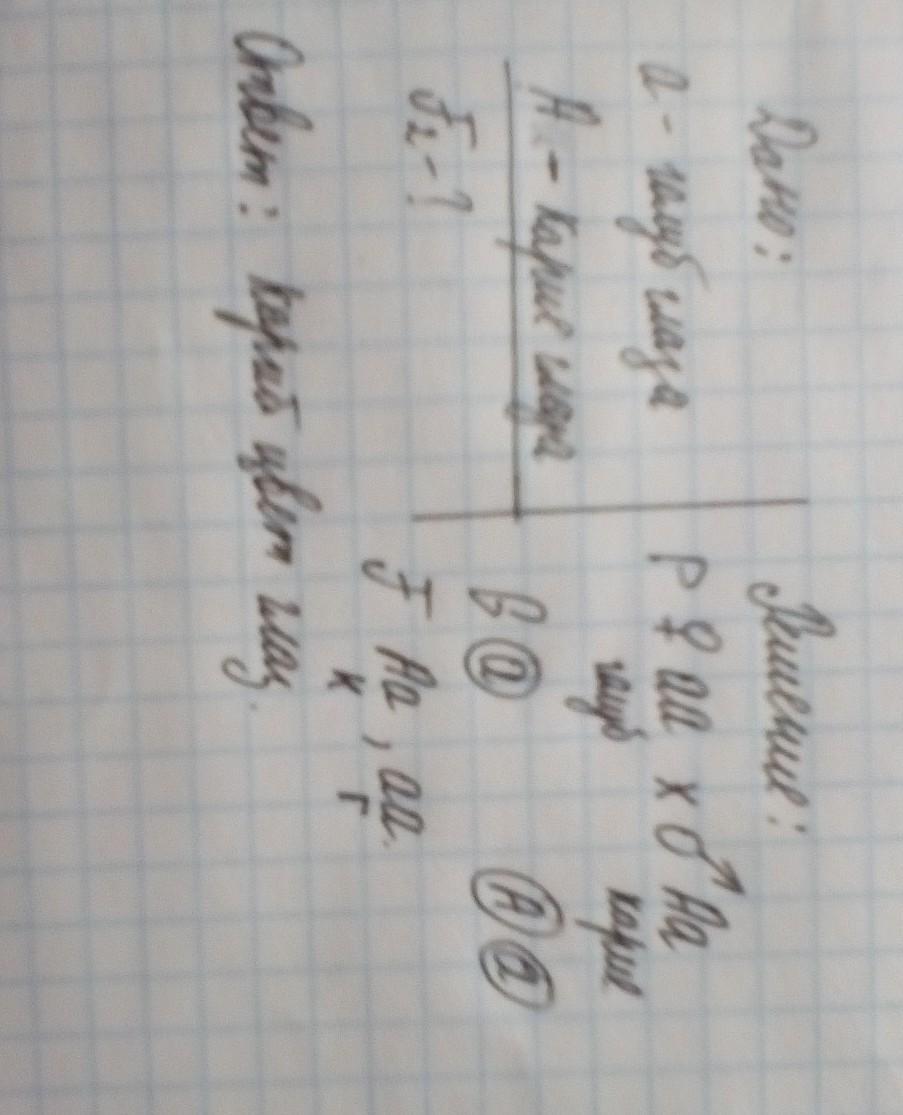 Дано:
а - голуб глаза
А - карие глаза
F₂ - ?
Решение:
P ♀ аа х ♂ Аа
голуб карие
G (а) (А) (а)
F Аа, аа.
к г
Ответ: карий цвет глаз.